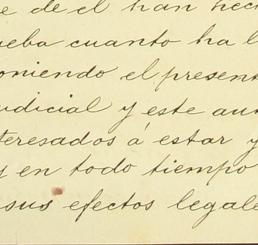 e de el han hec
ueba cuanto ha l
oniendo el present
udicial y este au
teresados á estar y
y en todo tiempo
sus efectos legale